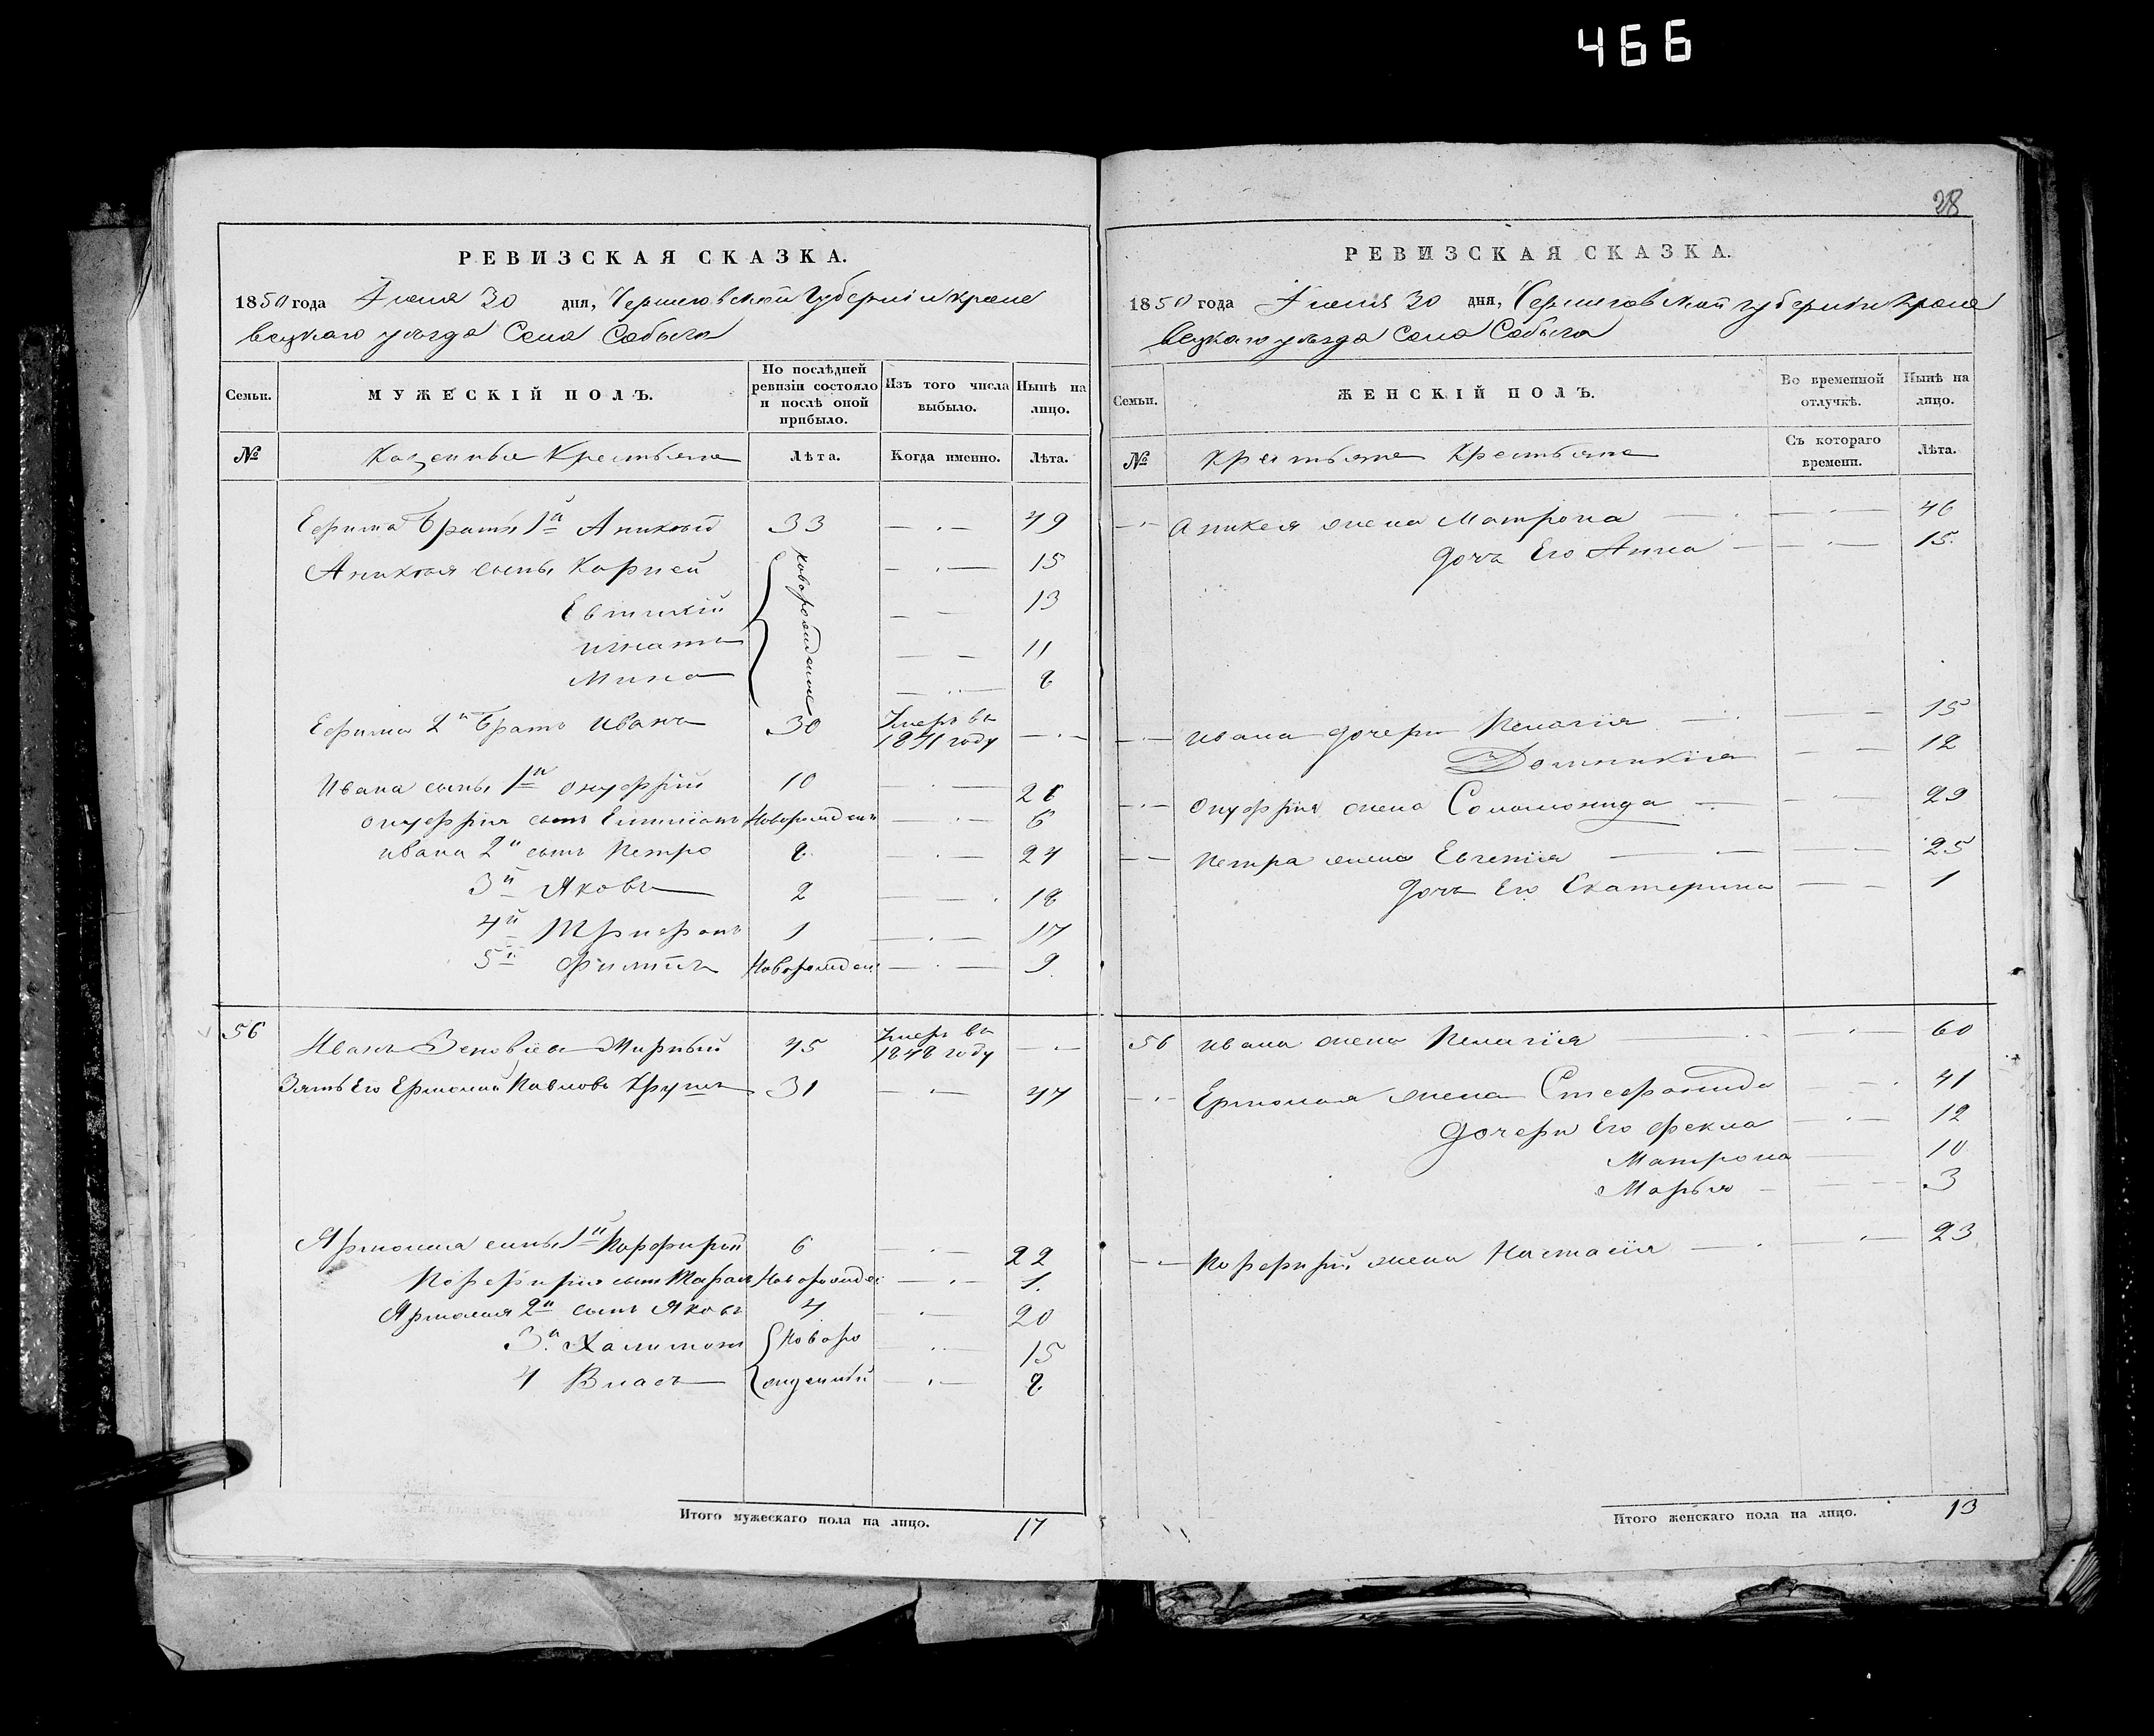 466
28
РЕВИЗСКАЯ СКАЗКА.
1850 года Июня 30 дня, Черниговской Губерніи Кроле
вецкаго уезда Села Собыча
Семьи. МУЖЕСКІЙ ПОЛЪ. По послѣдней ревизіи состояло и послѣ оной прибыло. Изъ того числа выбыло. Нынѣ на лицо.
№ Казенные Крестьяне Лѣта. Когда именно. Лѣта.
Ефима братъ 1й Аникѣй 33 49
Аникѣя сынъ Корней Новорожденные 15
Евтихій 13
Игнатъ 11
Мина 8
Ефима 2й братъ Иванъ 30 Умеръ въ 1841 году
Ивана сынъ 1й Онуфрій 10 26
Онуфрія сынъ Емиліанъ Новорожден 6
Ивана 2й сынъ Петро 8 24
3й Яковъ 2 18
4й Трифонъ 1 17
5й Филипъ Новорожден 9
56 Иванъ Зеновіевъ Мирный 45 Умеръ въ 1848 году
Зять Его Ермолай Павловъ 31 47
Ярмолая сынъ 1й Порфирій 6 22
Порфирія сынъ Тарасъ Новорожде 1
Ярмолая 2й сынъ Яковъ 4 20
3й Халимонъ Новоро 15
4 Власъ жденный 8
Итого мужескаго пола на лицо. 17
РЕВИЗСКАЯ СКАЗКА.
1850 года Июня 30 дня, Черниговской Губерніи Кроле
вецкаго уезда Села Собыча
Семьи. ЖЕНСКІЙ ПОЛЪ. Во временной отлучкѣ. Нынѣ на лицо.
№ Крестьяне Крестьяне Съ котораго времени. Лѣта.
Аникея жена Матрона 46
дочь Его Анна 15
Ивана дочери Пелагія 15
Домникія 12
Онуфрія жена Соломонида 29
Петра жена Евгенія 25
дочь Его Екатерина 1
56 Ивана жена Пелагія 60
Ермолая жена Стефанида 41
дочери Его Фекла 12
Матрона 10
Марья 3
Порфирій жена Настасія 23
Итого женскаго пола на лицо. 13